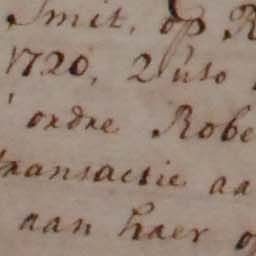 Smit, op R
1720, 2 uso
ordre Robe
transactie aa
aan haer o